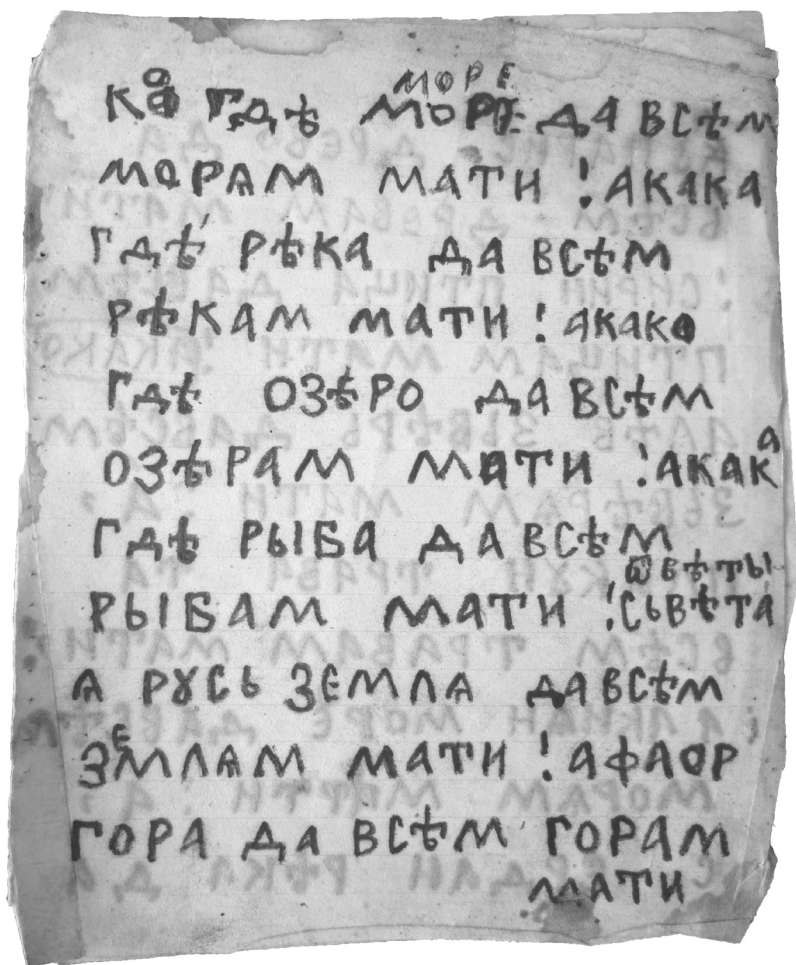 МОРЕ
КО ГДѢ МОРЕ ДА ВСѢМ
МОРѦМ МАТИ ! АКАКА
ГДѢ РѢКА ДА ВСѢМ
РѢКАМ МАТИ ! АКАКО
ГДѢ ОЗѢРО ДА ВСѢМ
ОЗѢРАМ МАТИ ! АКАКА
ГДѢ РЫБА ДА ВСѢМ
РЫБАМ МАТИ ! СЬВѢТА
Ѧ РꙊСЬ ЗЕМЛѦ ДА ВСѢМ
ЗЕМЛѦМ МАТИ ! АФАОР
ГОРА ДА ВСѢМ ГОРАМ
МАТИ